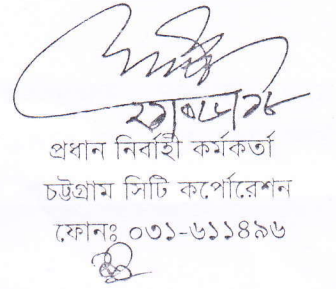 প্রধান নির্বাহী কর্মকর্তা
চট্টগ্রাম সিটি কর্পোরেশন
ফোনঃ ০৩১-৬১১৪৯৬